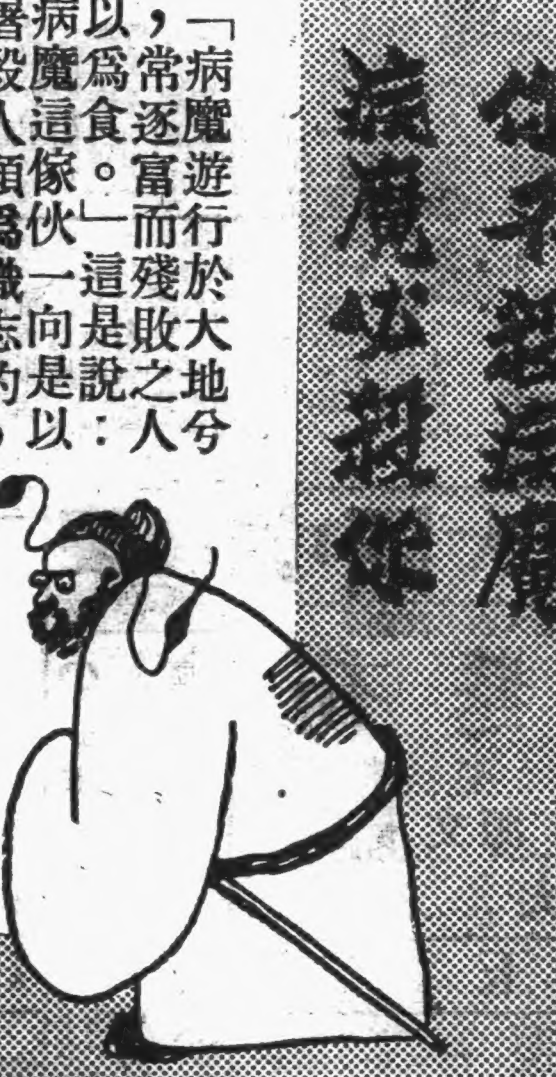 你不殺病魔
病魔必殺你
「病魔遊行於大地兮
，常逐富而殘敗之人
以爲食。」這是說：
病魔這傢伙一向是以
人類爲職志的，